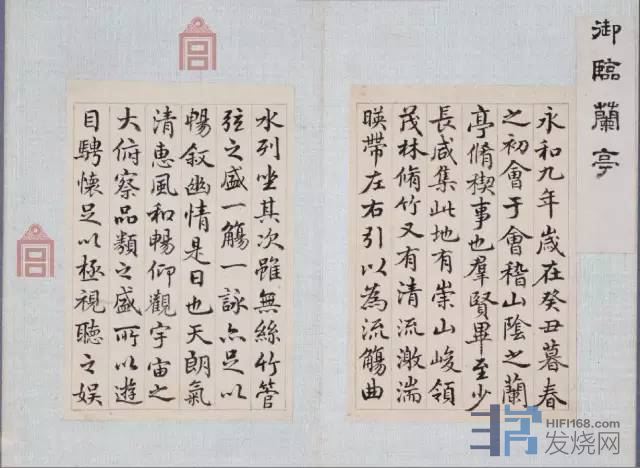 御臨蘭亭
永和九年歲在癸丑暮春
之初會于會稽山陰之蘭
亭脩稧事也羣賢畢至少
長咸集此地有崇山峻領
茂林脩竹又有清流激湍
暎帶左右引以為流觴曲
水列坐其次雖無絲竹管
弦之盛一觴一詠亦足以
暢叙幽情是日也天朗氣
清惠風和暢仰觀宇宙之
大俯察品類之盛所以遊
目騁懷足以極視聽之娱
HIFI168.com
发烧网